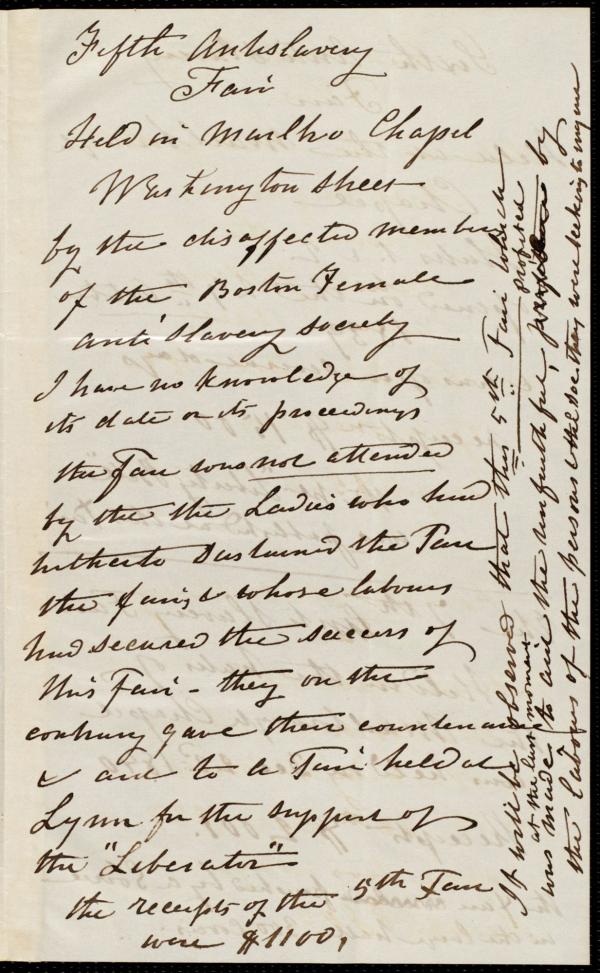 Fifth Antislavery
Fair
Held in Marlbro Chapel
Washington Street
by the disaffected members
of the Boston Female
Anti Slavery Society
I have no knowledge of
its date or its proceedings
the Fair was not attended
by the the Ladies who had
hitherto Sustained the Fair
the fairs, & whose labours
had secured the success of
this Fair - they on the
contrary gave their countenance
& aid to a Fair held at
Lynn for the support of
the "Liberator"
the receipts of the 5th Fair
were $1100,
It will be observed that this 5th Fair which
at the last moment profited
was made to aid the unfaithful, by
the labours of the persons & the Soc. they were seeking to injure